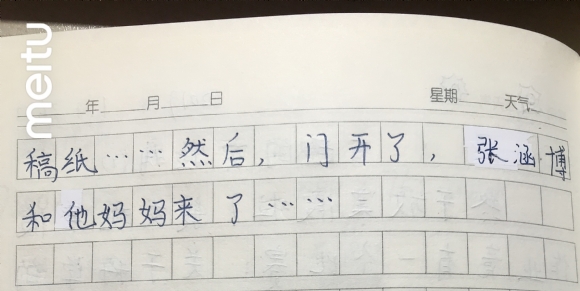 meitu
年 月 日 星期 天气
稿纸……然后，门开了，张涵博
和他妈妈来了……